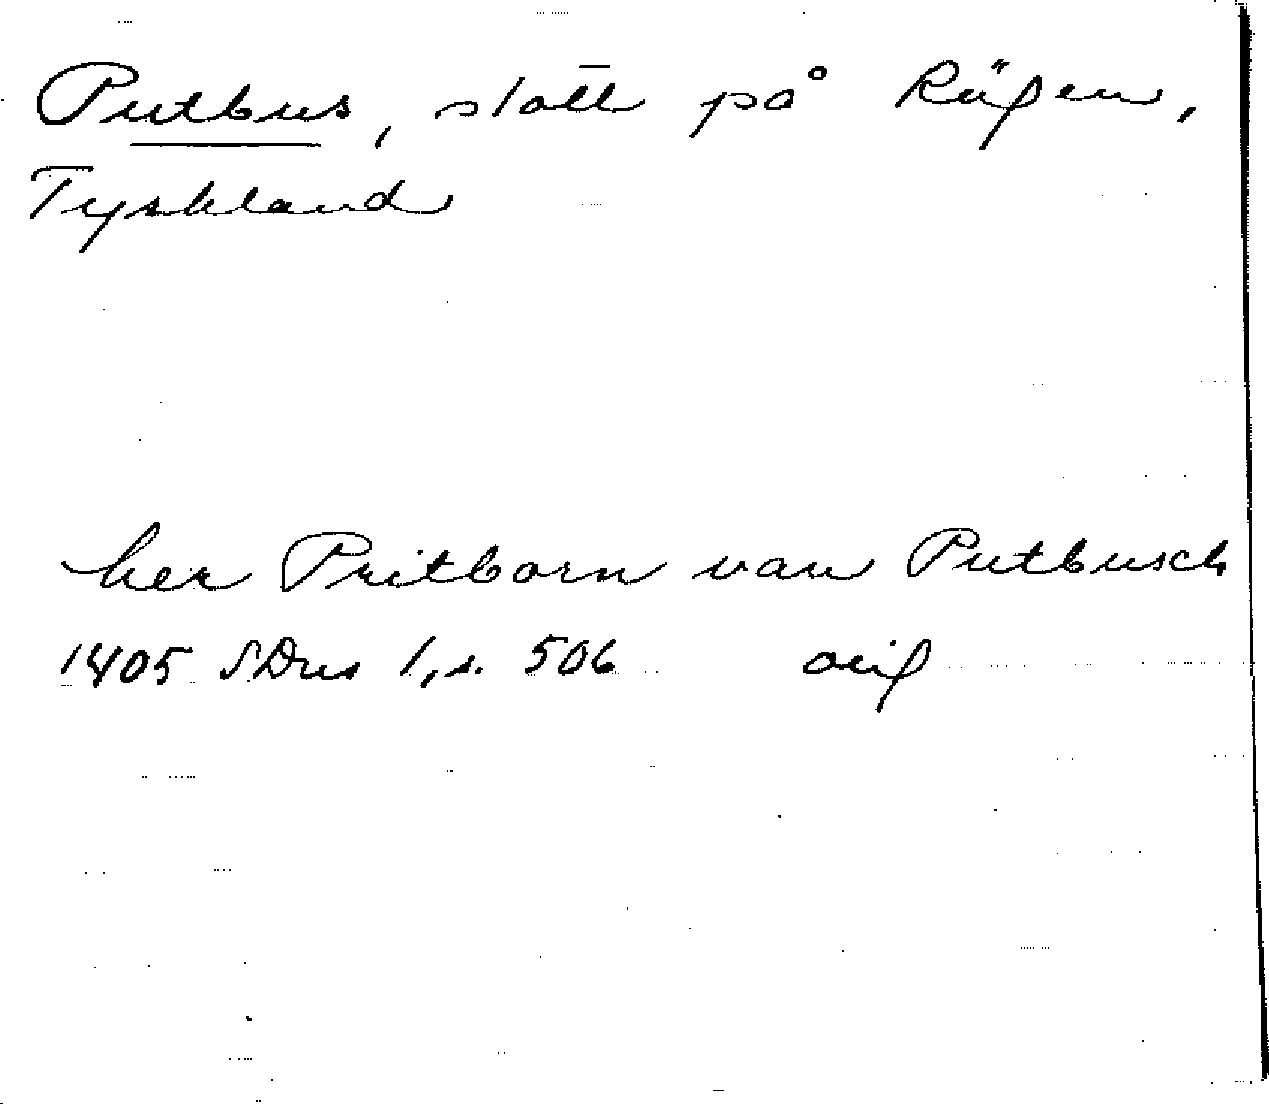 Putbus, slott på Rügen,
Tyskland
her Pritborn van Putbusch
1405 SDns 1, s. 506 orig